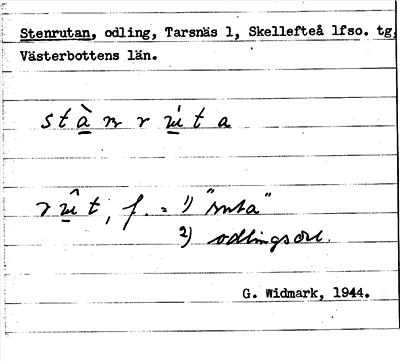 Stenrutan, odling, Tarsnäs 1, Skellefteå lfso. tg,
Västerbottens län.
r , f. = 1) "ruta"
2) odlingsord.
G. Widmark, 1944.